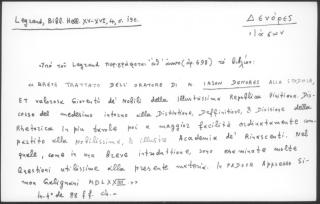 Legrand, Bibl. Hell. XV-XVI, 4, σ. 190.
Δενόρες
Ἰάσων
Ὑπὸ τοῦ Legrand περιγράφεται ἀπ' (σ. 698) τὸ βιβλίον:
« BREVE TRATTATO DELL' ORATORE DI M. IASON DENORES ALLA STUDIOSA,
ET valorosa Gioventù de' Nobili della Illustrissima Republica Vinitiana. Dis-
corso del medesimo intorno alla Distintione, Definitione, & Divisione della
Rhetorica in piu tavole poi a maggior facilità ordinatamente com-
partito alla Nobilissima, & Illustre Academia de' Rinascenti. Nel
quale, come in una Breve introduttione, sono esaminate molte
Questioni utilissime alla presente materia. In PADOVA Appresso Si-
mon Galignani MDLXXIIII. »»
in 4° de 98 ff. ch. —